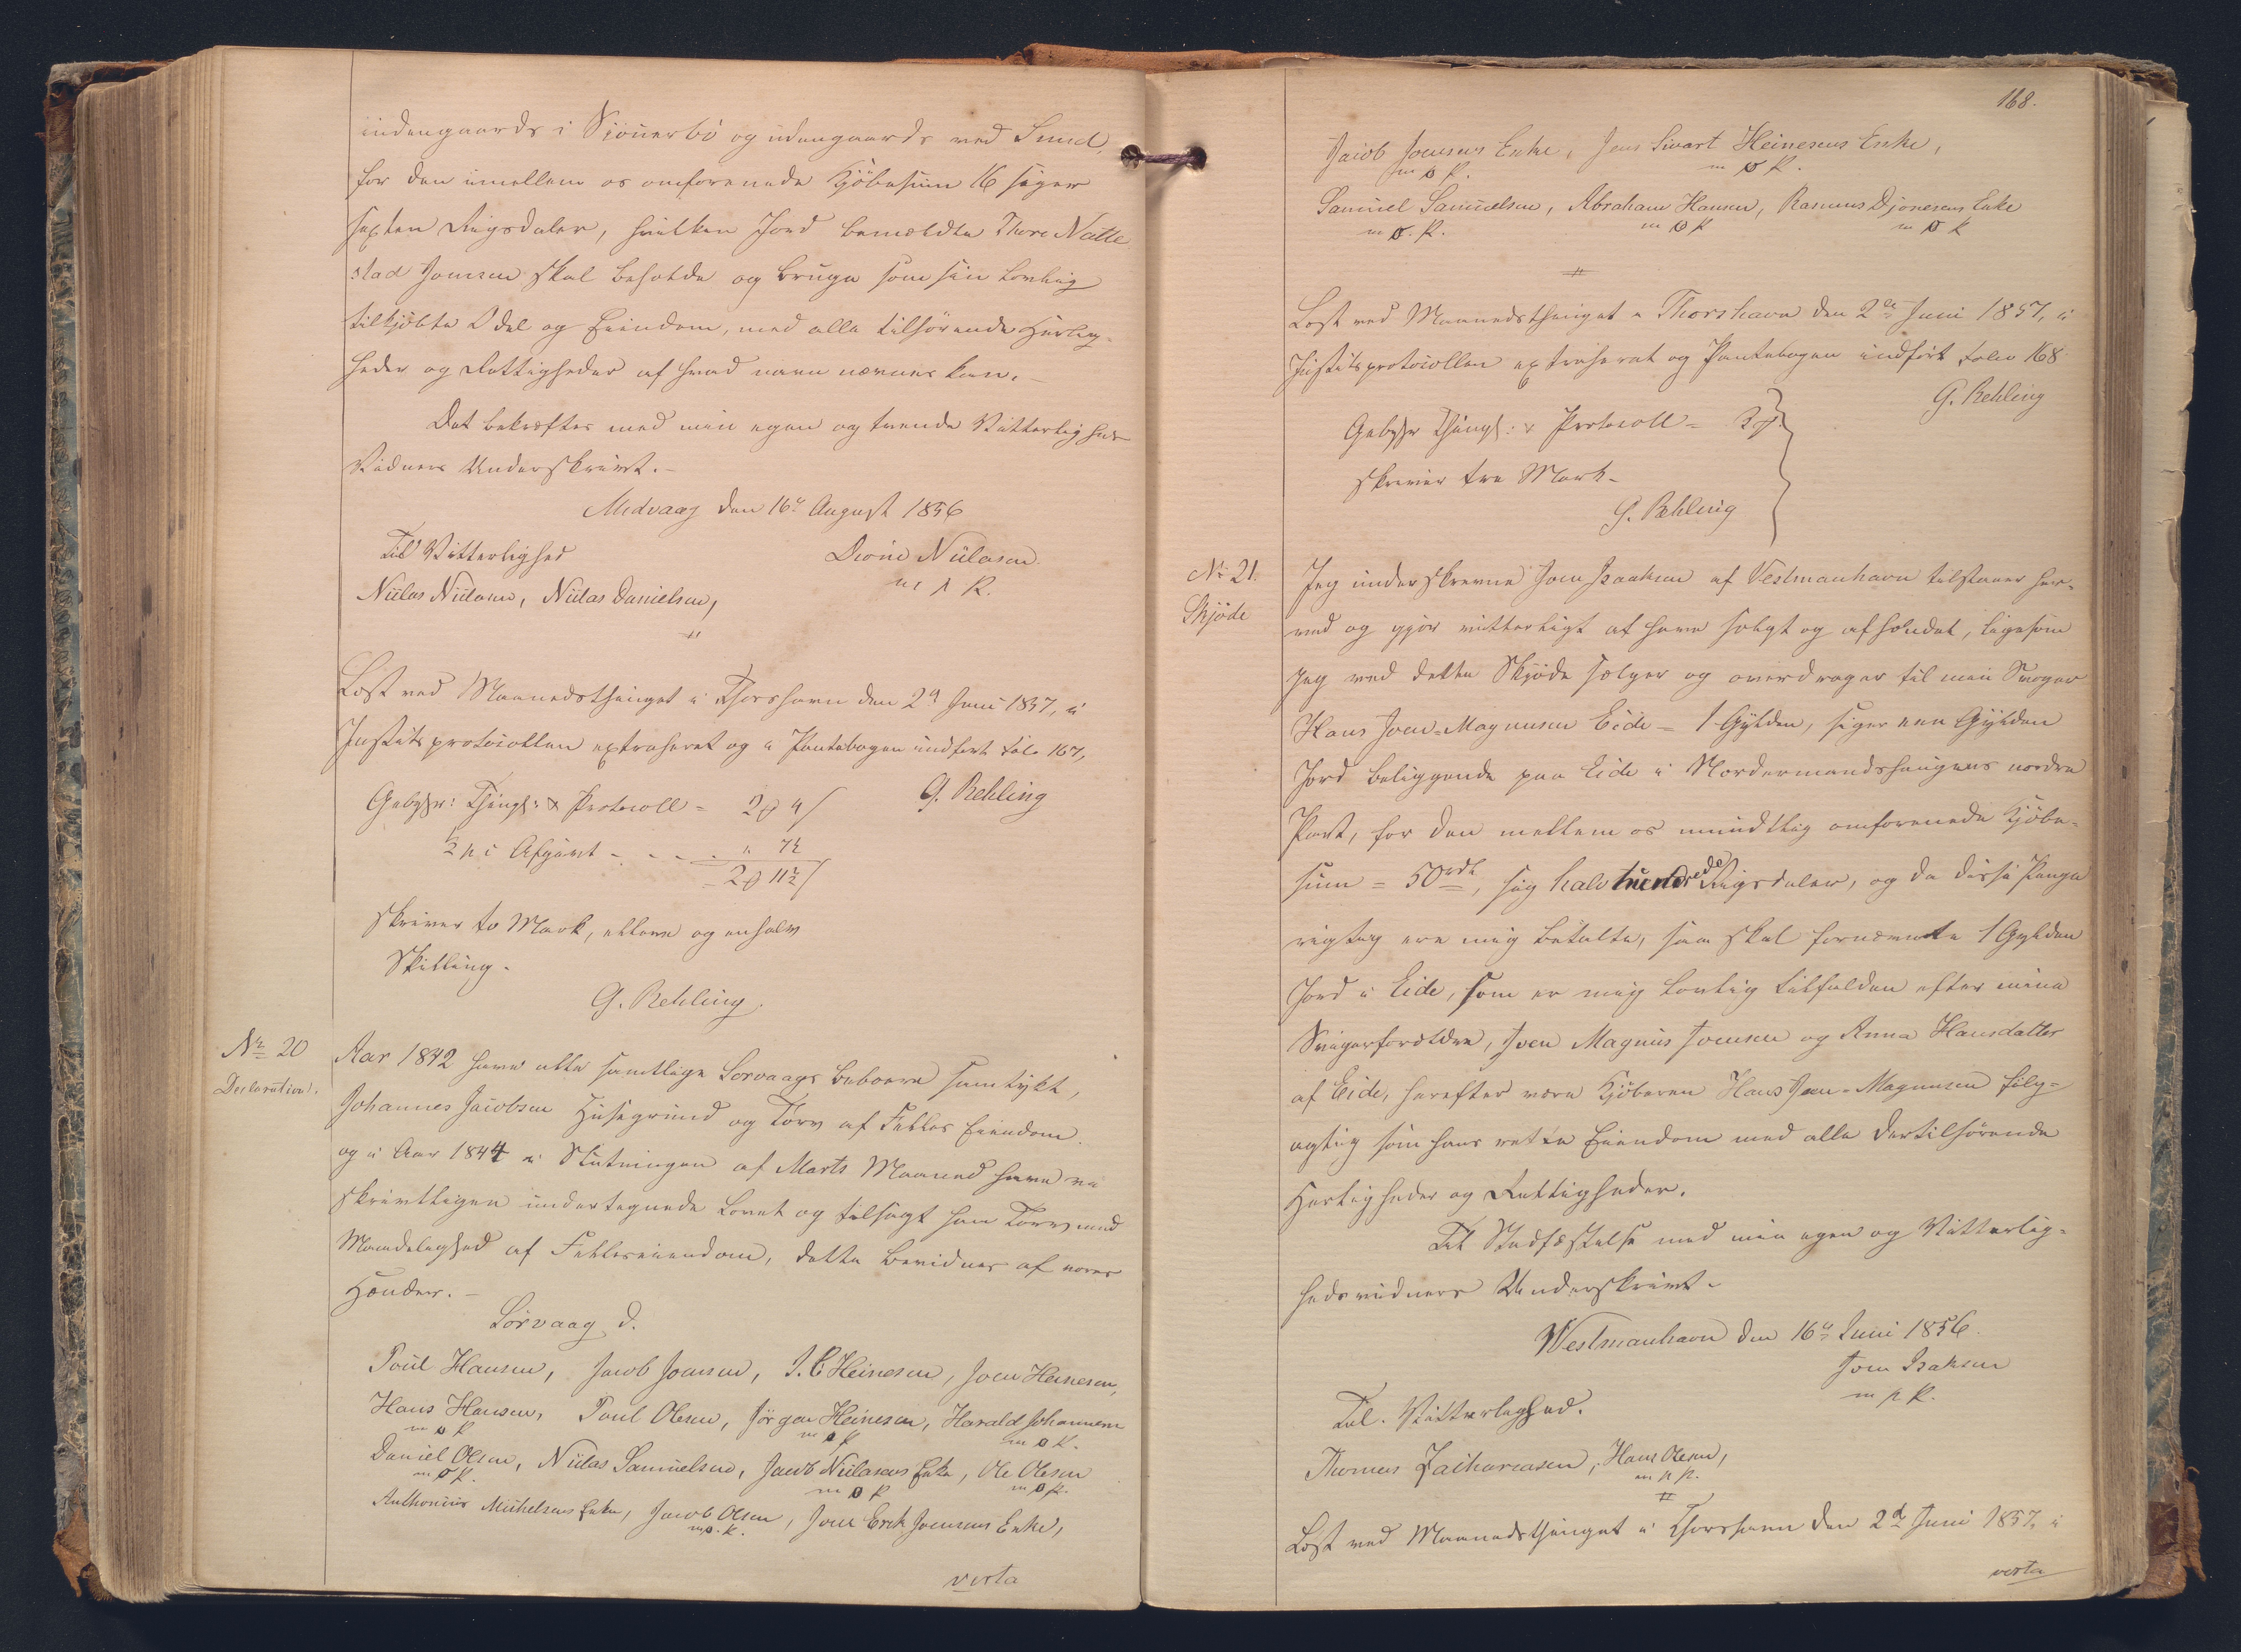 indengaards i Sjöuerbö og udengaards ved Sund,
for den imellem os omforenede Kjöbesum 16 siger
sexten Rigsdaler, hvilken Jord bemældte Thore Natte
stad Joensen skal beholde og bruge som sin lovlig
tilkjöbte Odel og Eiendom, med alle tilhörende Herlig-
heder og Rettigheder af hvad navn nævnes kan.
Det bekræftes med min egen og tvende Vitterligheds
Vidners Underskrivt.
Midvaag den 16de August 1856
Til Vitterlighed
Niilas Niilasen, Niilas Danielsen,
Niilasen
Læst ved Maanedsthinget i Thorshavn den 2d Juni 1857, i
Justitsprotocollen extraheret og i Pantebogen indfört Folio 167,
G. Rehling
Gebyhr: Thingl: & Protocoll = 2 4
½ pC Afgivt - - - " 7½
2 11½
skriver to Mark, elleve og en halv
Skilling.
G. Rehling.
No 20
Declaration.
Aar 1842 have alle samtlige Sorvaags Beboere samtykt,
Johannes Jacobsen Husegrund og Törv af Felles Eiendom.
og i Aar 1844 i Slutningen af Marts Maaned have vi
skrivtligen undertegnede lovet og tilsagt ham Törv med
Mandelighed af Felleseiendom, dette bevidner af vores
Hænder.
Sörvaag d.
Poul Hansen, Jacob Joensen, J. C Heinesen, Joen Heinesen,
Hans Hansen, Poul Olesen, Jörgen Heinesen, Harald Johannesen
Daniel Olsen, Niilas Samuelsen, Jacob Niilasens Enke, Ole Olesen
Anthonius Michelsens Enke, Jacob Olsen, Joen Erik Joensens Enke,
verta
168.
Jacob Joensens Enke, Jens Sivart Heinesens Enke,
Samuel Samuelsen, Abraham Hansen, Rasmus Djonesens Enke
Læst ved Maanedsthinget i Thorshavn den 2de Juni 1857, i
Justitsprotocollen extraheret og Pantebogen indfört Folio 168
G. Rehling
Gebyhr Thingl: & Protocoll = 3
skriver tre Mark.
G. Rehling
No 21.
Skjöde
Jeg underskrevne Joen Isaaksen af Vestmanhavn tilstaaer her-
ved og gjör vitterligt at have solgt og afhændet, ligesom
jeg ved dette Skjöde sælger og overdrager til min Svoger
Hans Joen-Magnusen Eide = 1 Gylden, siger een Gylden
Jord beliggende paa Eide i Nordermandshaugens nordre
Part, for den mellem os mundtlig omforenede Kjöbe-
sum = 50 rdl, sig halvhundrede Rigsdaler, og da disse Penge
rigtig ere mig betalte, saa skal fornævnte 1 Gylden
Jord i Eide, som er mig lovlig tilfalden efter mine
Svigerforældre, Joen Magnus Joensen og Anna Hansdatter
af Eide, herefter være Kjöberen Hans Joen-Magnusen fölg-
agtig som hans rette Eiendom med alle dertilhörende
Herligheder og Rettigheder.
Til Stadfæstelse med min egen og Vitterlig-
hedsvidners Underskrivt.
Westmanhavn den 16de Juni 1856.
Joen Isaksen
Til Vitterlighed.
Thomas Zachariasen, Hans Olesen,
Læst ved Maanedsthinget i Thorshavn den 2d Juni 1857, i
verta